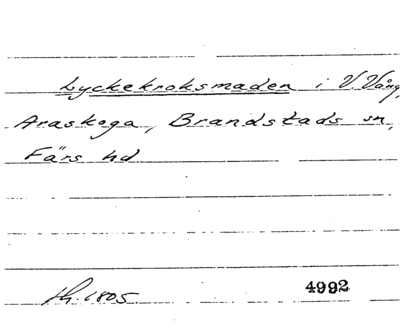 Lyckekroksmaden i V. Vång,
Araskoga, Brandstads sn,
Färs hd
1805. 4992